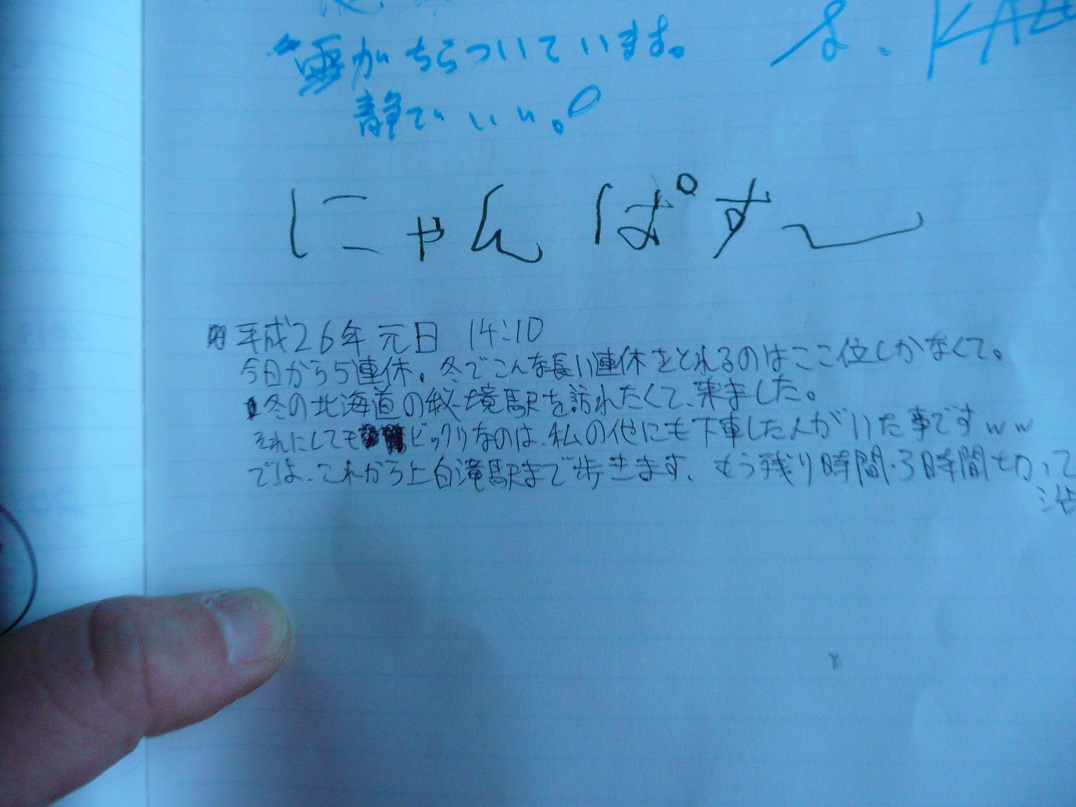 雪がちらついています。
静でいい。
よ. KAZ
にゃんぱす〜
平成26年 元日 14:10
今日から5連休。冬でこんな長い連休をとれるのはここ位しかなくて。
冬の北海道の秘境駅を訪れたくて、来ました。
それにしてもビックリなのは、私の他にも下車した人がいた事ですww
では、これから上白滝駅まで歩きます。もう残り時間3時間切って